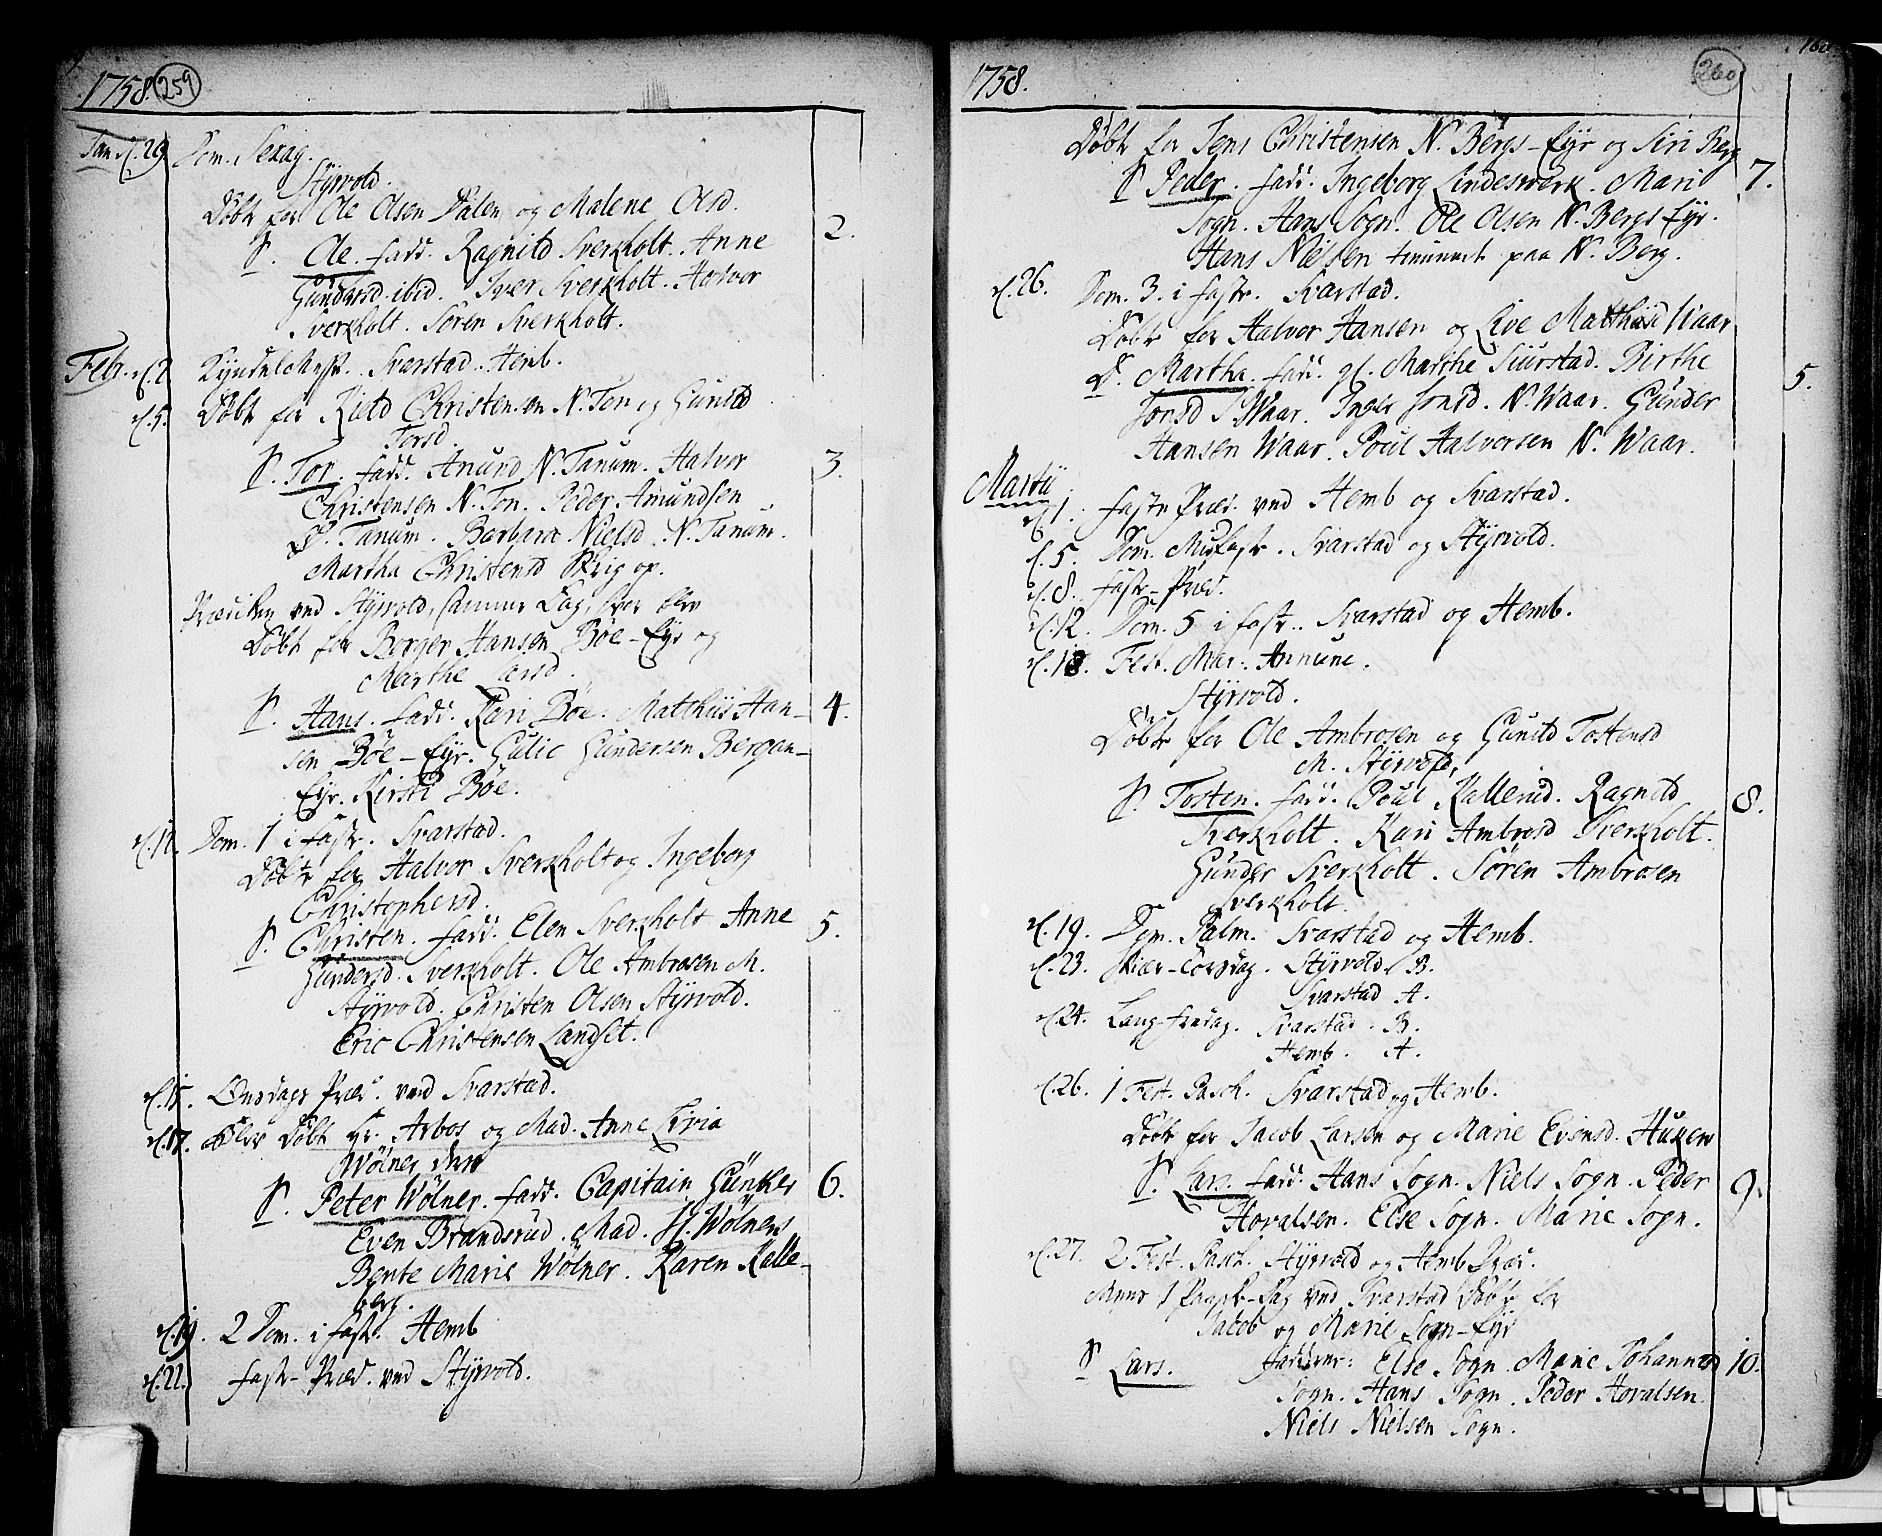 1758. 259
Jan. d. 29 Dom. Sexag.
Styrvold.
Döbt for Ole Olsen Dalen og Malene Olsd.
S. Ole. fadd. Ragnild Sverkholt. Anne 2.
Gundersd. ibid. Iver Sverkholt. Halvor
Sverkholt. Sören Sverkholt.
Febr. d. 2 Kyndelmesse. Svarstad. Hemb.
d. 5. Döbt for Kield Christensen N. Ton og Gunild
Torsd.
S. Tor. fadd. Anund N. Tanum. Halvor 3.
Christensen N. Ton. Peder Amundsen
S. Tanum. Barbara Nielsd. N. Tanum.
Martha Christensd.
ved Styrvold, samme Dag, hvor blev
Döbt for Berger Hansen Böe-Eyr og
Marthe Larsd.
S. Hans. fadd. Kari Böe. Matthiis Han- 4.
sen Böe-Eyr. Gulic Gundersen Bergan-
Eyr. Kirsti Böe.
d. 12. Dom. 1 i fast. Svarstad.
Döbt for Halvor Sverkholt og Ingeborg
Christophersd.
S. Christen. fadd. Elen Sverkholt Anne 5.
Gundersd. Sverkholt. Ole Ambrosen M.
Styrvold. Christen Olsen Styrvold.
Eric Christensen Landset.
d. 15. Onsdags Præd. ved Svarstad.
d. 17. Blev Döbt Hr. Arbos og Mad. Anne Livia
Wölner deres
S. Peter Wölner. fadd. Capitain Günker 6.
Even Brandsrud. Mad. H. Wölners
Bente Marie Wölner. Karen Kalle-
berg.
d. 19. 2 Dom. i fast. Hemb
d. 22. fast-Præd. ved Styrvold.
1758. 260
Döbt for Jens Christensen N. Bergs-Eyr og Siri Berg
S Peder. fadd. Ingeborg Lindeswerk. Mari 7.
Sogn. Hans Sogn. Ole Olsen N. Bergs Eyr.
Hans Nielsen paa N. Berg.
d. 26. Dom. 3. i fast. Svarstad.
Döbt for Halvor Hansen og Live Matthisd Waar
D. Martha. fadd. gl. Marthe Siurstad. Birthe 5.
Jonsd S Waar. Inger Jonsd. N. Waar. Gunder
Hansen Waar. Poul Halvorsen N. Waar.
Martii
d. 1. faste Præd. ved Hemb og Svarstad.
d. 5. Dom. Midfast. Svarstad og Styrvold.
d. 8. fast-Præd.
d. 12. Dom. 5 i fast. Svarstad og Hemb.
d. 18. Fest. Mar. Annunc.
Styrvold.
Döbt for Ole Ambrosen og Gunild Tostensd
M. Styrvold,
S. Tosten. fadd. Poul Kallerud. Ragnild 8.
Sverkholt. Kari Ambrosd Sverkholt.
Gunder Sverkholt. Sören Ambrosen
Sverkholt.
d. 19. Dom. Palm. Svarstad og Hemb.
d. 23. Skier-Torsdag. Styrvold. B.
Svarstad A.
d. 24. Lang-fredag. Svarstad. B.
Hemb. A.
d. 26. 1 Fest. Pasch. Svarstad og Hemb.
Döbt for Jacob Larsen og Marie Evensd. Huxen
S. Lars. fadd. Hans Sogn. Niels Sogn. Peder 9.
Hovalsen. Else Sogn. Marie Sogn.
d. 27. 2 Fest. Pasch. Styrvold og Hemb Præd.
1 Paaske-Dag ved Svarstad Döbt for
Jacob og Marie Sogn-Eyr
S Lars. fadderne: Else Sogn. Marie Johannesd 10.
Sogn. Hans Sogn. Peder Hovalsen.
Niels Nielsen Sogn.